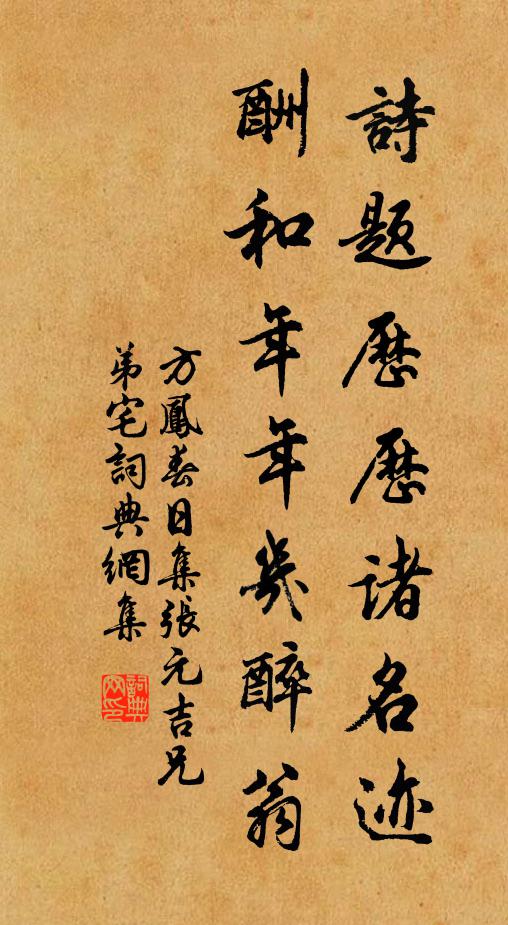 詩題歷歷諸名迹
酬和年年幾醉翁
方鳳春日集張元吉兄
弟宅詞典網集
詞典網印